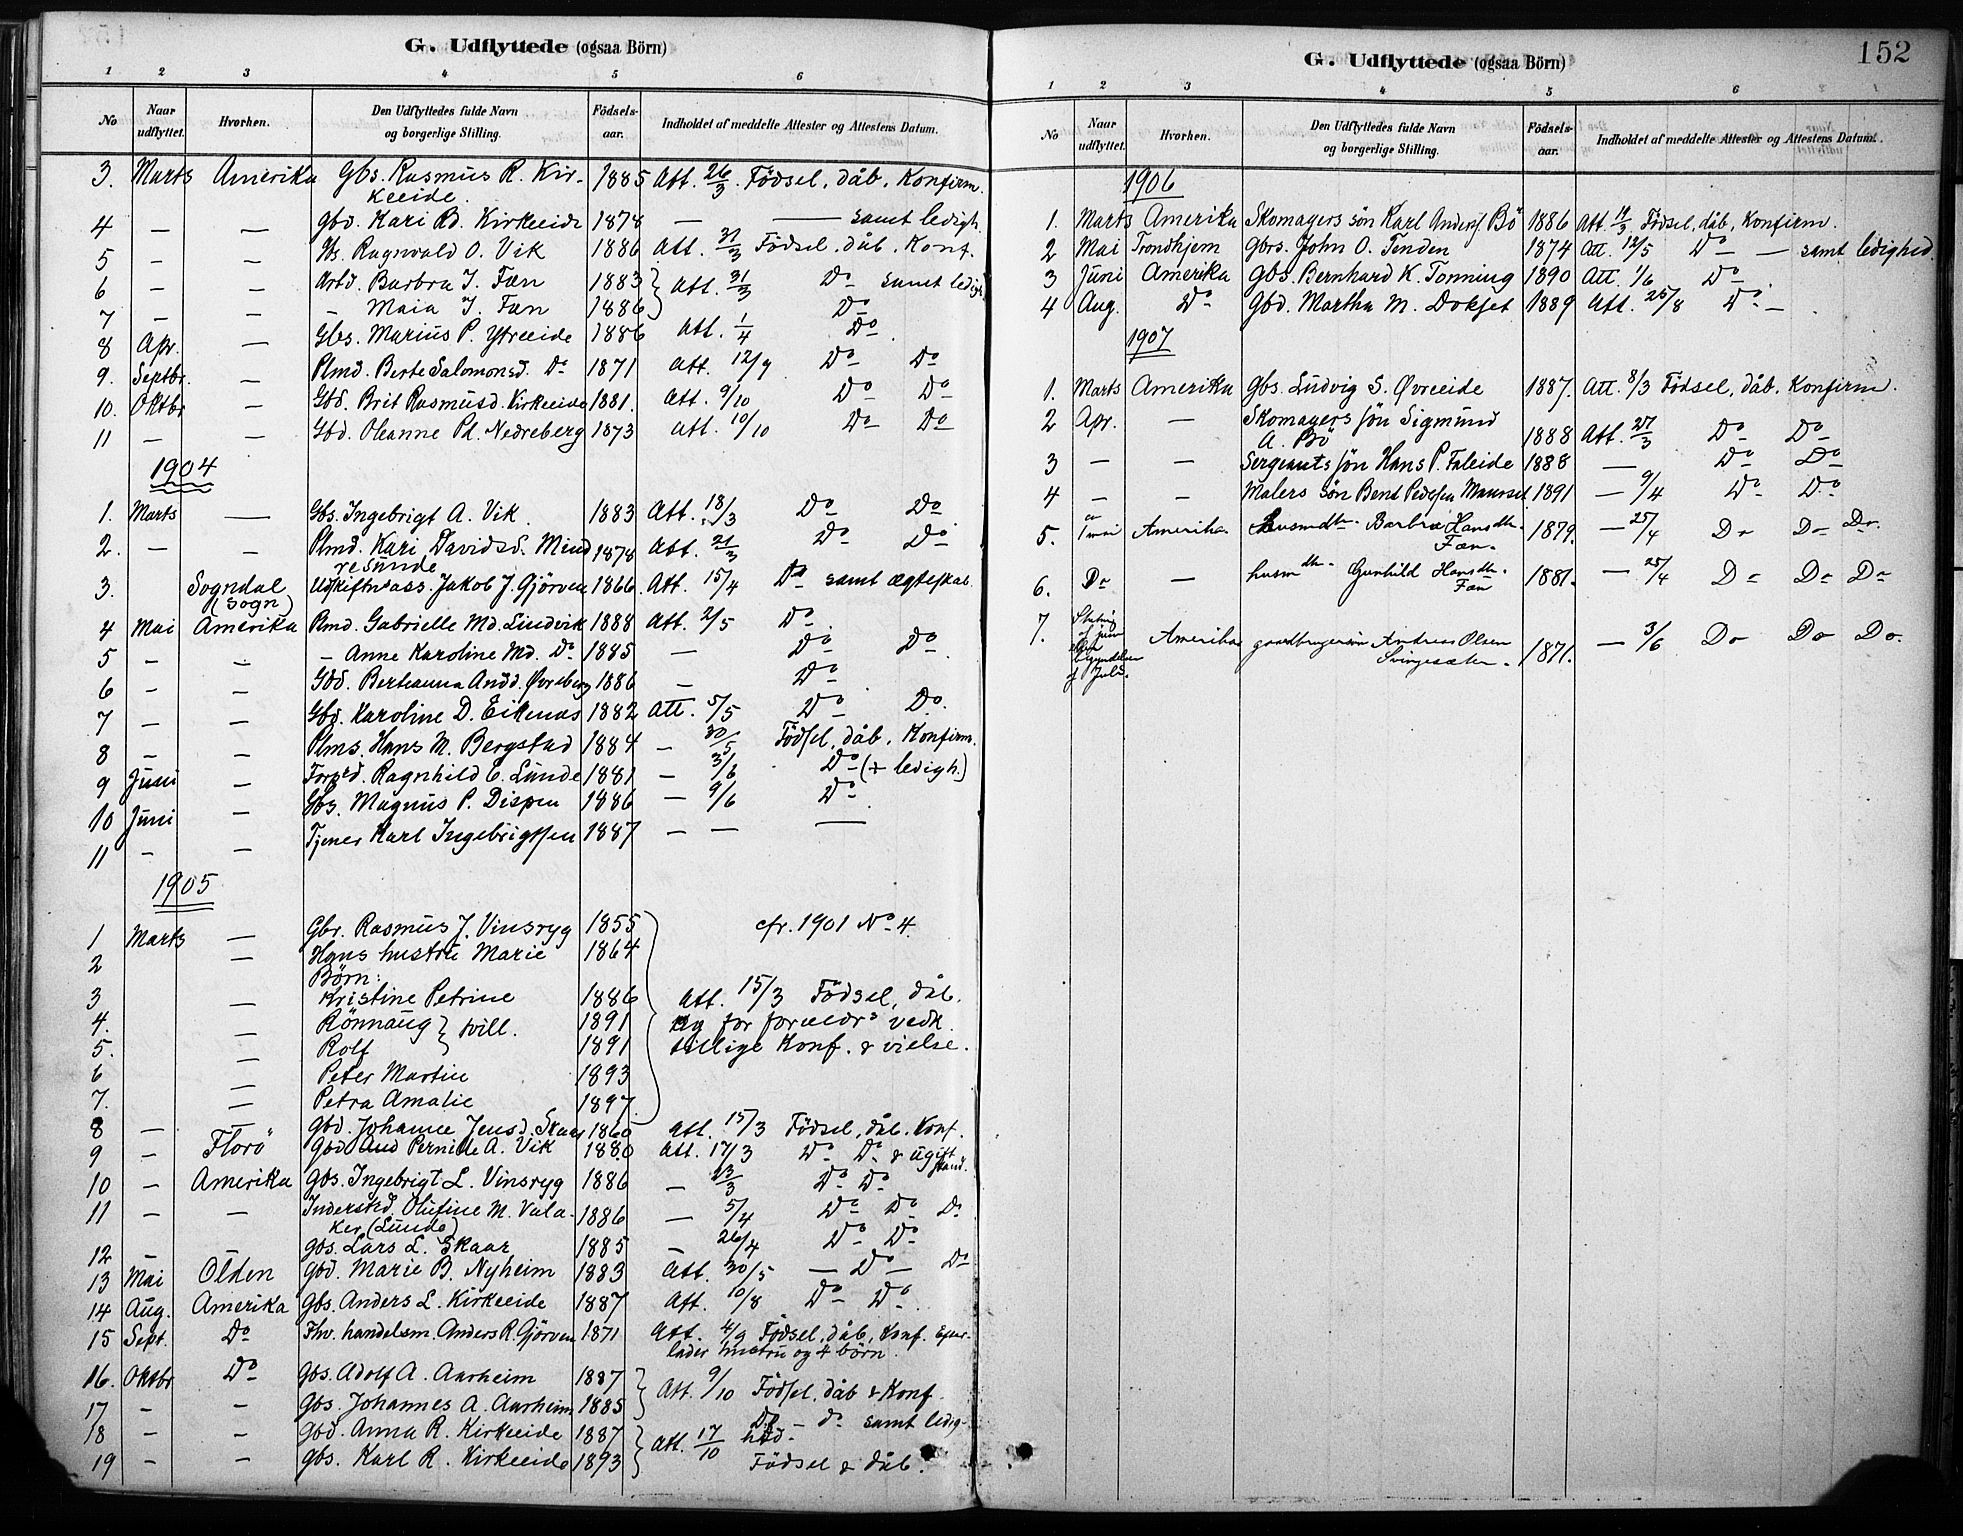 G. Udflyttede (ogsaa Börn)
1 2 3 4 5 6
No Naar udflyttet. Hvorhen. Den Udflyttedes fulde Navn og borgerlige Stilling. Födsels-aar. Indholdet af meddelte Attester og Attestens Datum.
3. Marts Amerika Gbs. Rasmus R. Kir- 1885 Att. 26/3. Födsel, dåb, Konfirm.
keeide.
4 — — gbd. Kari Rd. Kirkeeide 1878 — — samt ledigh.
5 — — Gbs. Ragnvald O. Vik 1886 Att. 31/3 Födsel, dåb, Konf.
6 — — Arbd. Barbra J. Fæn 1883 } Att. 31/3 Do samt ledigh.
7 — — — Maia J. Fæn 1886 } Do
8 Apr. — Gbs. Marius P. Ytreeide 1886 Att. 1/4 Do
9. Septbr. — Plmd. Berte Salomonsd. Do 1871 Att. 12/9 Do Do
10. Oktbr — Gbd. Brit Rasmusd. Kirkeeide 1881. Att. 9/10 Do Do
11 — — Gbd. Oleanne Pd. Nedreberg 1873 Att. 10/10 Do Do
1904
1. Marts — Gbs. Ingebrigt A. Vik 1883 Att. 18/3 Do Do
2. — — Plmd. Kari Davidsd. Mind 1878 Att. 21/3 Do Do
resunde
3. Sogndal Udskiftn.ass. Jakob J. Gjörven 1866. Att. 15/4 Do samt ægteskab.
(Sogn)
4 Mai Amerika Rmd. Gabrielle Md. Lindvik 1888 Att. 2/5 Do
5 — — — Anne Karoline Md. Do 1885 — Do Do
6 — — Gbd. Bertranna Andd. Øvreberg 1886 — Do
7 — — Gbd. Karoline D. Eikenæs 1882 Att. 5/5 Do Do.
8 — — Plms. Hans M. Bergstad 1884 — 30/5 Födsel, dåb, Konfirm.
9 Juni — Ragnhild E. Lunde 1881 — 3/6 Do (+ ledigh.)
10 Juni — Gbs. Magnus P. Dispen 1886 — 9/6 Do
11 — — Tjener Karl Ingebrigtsen 1887 — — —
1905
1 Marts — Gbr. Rasmus J. Vinsryg 1855 cfr. 1901 No 4.
2 — Hans hustru Marie 1864
Börn:
3 — Kristine Petrine 1886 Att. 15/3 Födsel, dåb.
4. — Rönnaug } tvill. 1891 og for foreldrs vedk.
5. — Rolf 1891 tillige Konf. & vielse.
6 — Peter Martin 1893
7. — Petra Amalie 1897.
8 — — gbd. Johanne Jensd. Skaar 1860 Att. 15/3 Födsel, dåb. Konf.
9 — Florö Gbd And Pernille A. Vik 1880 Att. 17/3 Do Do & ugift
stand.
10 — Amerika Gbs. Ingebrigt L. Vinsryg 1886 — 23/3 Do Do
11 — — Inderstd. Olufine M. Vala- 1886 — 5/4 Do Do Do
ker (Lunde)
12 — — gbs. Lars L. Skaar 1885 — 26/4 Do Do
13 Mai Olden gbd. Marie B. Nyheim 1883 Att. 30/5 — Do — Do
14 Aug. Amerika Gbs. Anders L. Kirkeeide 1887 Att. 10/8 Do Do
15 Sept. Do Fhv. handelsm. Anders R. Gjörven 1871 Att. 4/9 Födsel, dåb, Konf. Efter-
lader hustru og 4 börn.
16. Oktbr Do Gbs. Adolf A. Aarheim 1887 } Att. 9/10 Födsel, dåb & Konf.
17 — — Gbs. Johannes A. Aarheim 1885 }
18 — — Gbd. Anna R. Kirkeeide 1887 } Att. 17/10 Do — do samt ledig-
hed.
19 — — Gbs. Karl R. Kirkeeide 1893 } Födsel & dåb.
G. Udflyttede (ogsaa Börn) 152
1 2 3 4 5 6
No Naar udflyttet. Hvorhen. Den Udflyttedes fulde Navn og borgerlige Stilling. Födsels-aar. Indholdet af meddelte Attester og Attestens Datum.
1906
1. Marts Amerika Skomagers sön Karl Anders. Bö 1886 Att. 14/3 Födsel, dåb, Konfirm.
2 Mai Trondhjem Gbrs. John O. Tenden 1874 Att. 12/5 Do — — samt ledighed.
3 Juni Amerika Gbs. Bernhard K. Tonning 1890 Att. 1/6 Do —
4 Aug. Do Gbd. Martha M. Dokset 1889 Att. 25/8 Do —
1907
1. Marts Amerika Gbs. Ludvig S. Øvreeide 1887. Att. 8/3 Födsel, dåb. Konfirm.
2 Apr. — Skomagers sön Sigmund
A. Bö 1888 Att. 27/3 Do Do
3 — — Sergeants sön Hans P. Faleide 1888 — Do Do
4 — — Malers sön Bent Pedersen Maurset 1891 — 9/4 Do Do
5. Amerika Husmdtr. Barbra Hansdtr. 1879. — 25/4 Do Do Do.
Fæn.
6. Do — husmdtr. Gunhild Hansdtr. 1881. — 25/4 Do Do Do
Fæn
7. Slutning
af juni
eller Amerika gaardbrugersön Andreas Olsen 1871. — 3/6 Do Do Do.
begyndelsen Svingesæter.
af Juli.